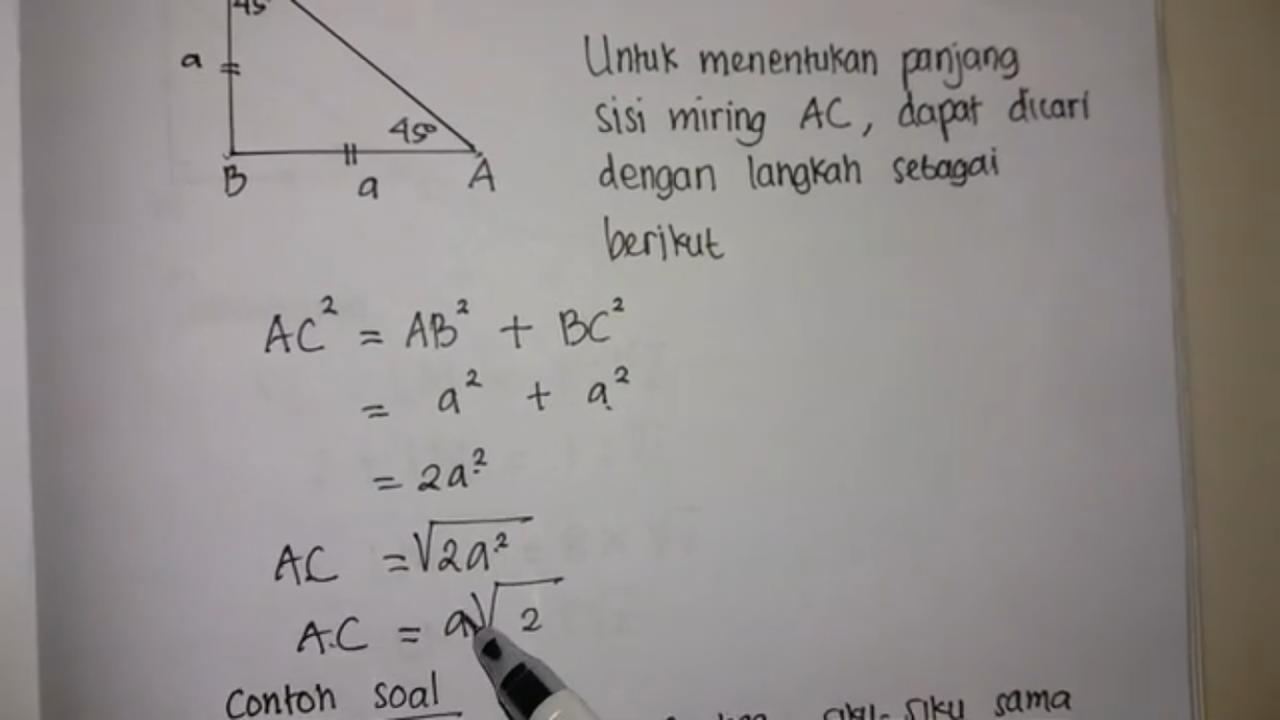 45°
a
45°
B
a
A
Untuk menentukan panjang
sisi miring AC, dapat dicari
dengan langkah sebagai
berikut
AC² = AB² + BC²
= a² + a²
= 2a²
AC = √2a²
AC = a√2
Contoh soal
siku sama